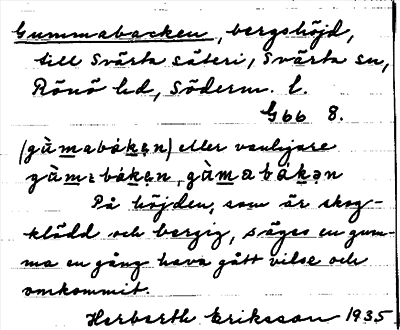 Gummabacken, bergshöjd,
till Svärta säteri, Svärta sn,
Rönö hd, Söderm. l.
G66 8.
(gùmabákən) eller vanligare
gùm:bákən, gùmabákən
På höjden, som är skog-
klädd och bergig, säges en gum-
ma en gång hava gått vilse och
omkommit.
Herbarth Eriksson 1935